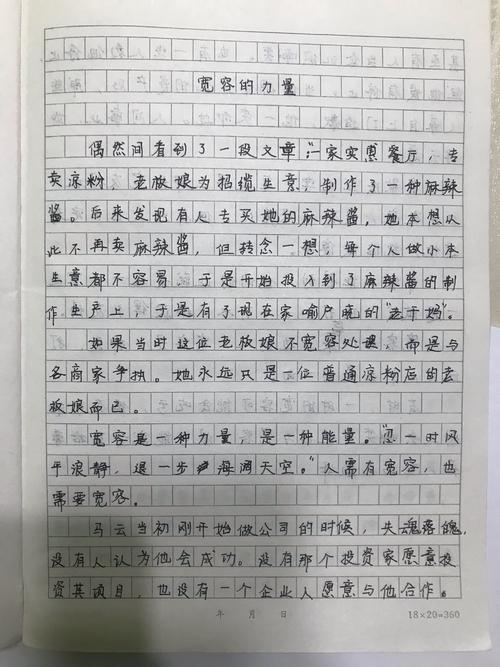 宽容的力量
偶然间看到了一段文章:“一家实惠餐厅,专
卖凉粉。老板娘为招揽生意,制作了一种麻辣
酱。后来发现有人专买她的麻辣酱,她本想从
此不再卖麻辣酱,但转念一想,每个人做小本
生意都不容易。于是开始投入到了麻辣酱的制
作生产上,于是有了现在家喻户晓的“老干妈”。
如果当时这位老板娘不宽容处理,而是与
各商家争执。她永远只是一位普通凉粉店的老
板娘而已。
宽容是一种力量,是一种能量。“忍一时风
平浪静,退一步海阔天空。”人需有宽容,也
需要宽容。
马云当初刚开始做公司的时候,失魂落魄,
没有人认为他会成功。没有那个投资家愿意投
资其项目,也没有一个企业人愿意与他合作。
年 月 日
18×20=360